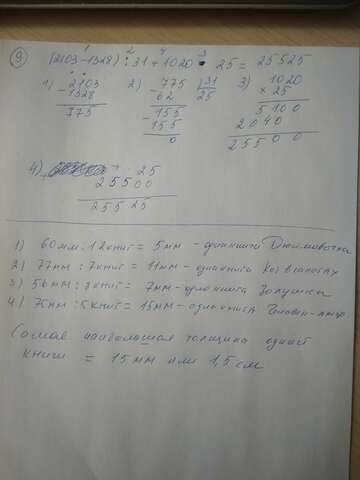 9) (2103-1328) : 31 + 1020 · 25 = 25525
1) 2103 2) 775 | 31 3) 1020
- 1328 - 62 25 × 25
775 - 155 5100
155 2040
0 25500
4) + 25
25500
25525
1) 60мм : 12книг = 5мм - одна книга Дюймовочка
2) 77мм : 7книг = 11мм - одна книга
3) 56мм : 8книг = 7мм - одна книга Золушка
4) 75мм : 5книг = 15мм - одна книга Человек-
Самая наибольшая толщина одной
книги = 15 мм или 1,5 см